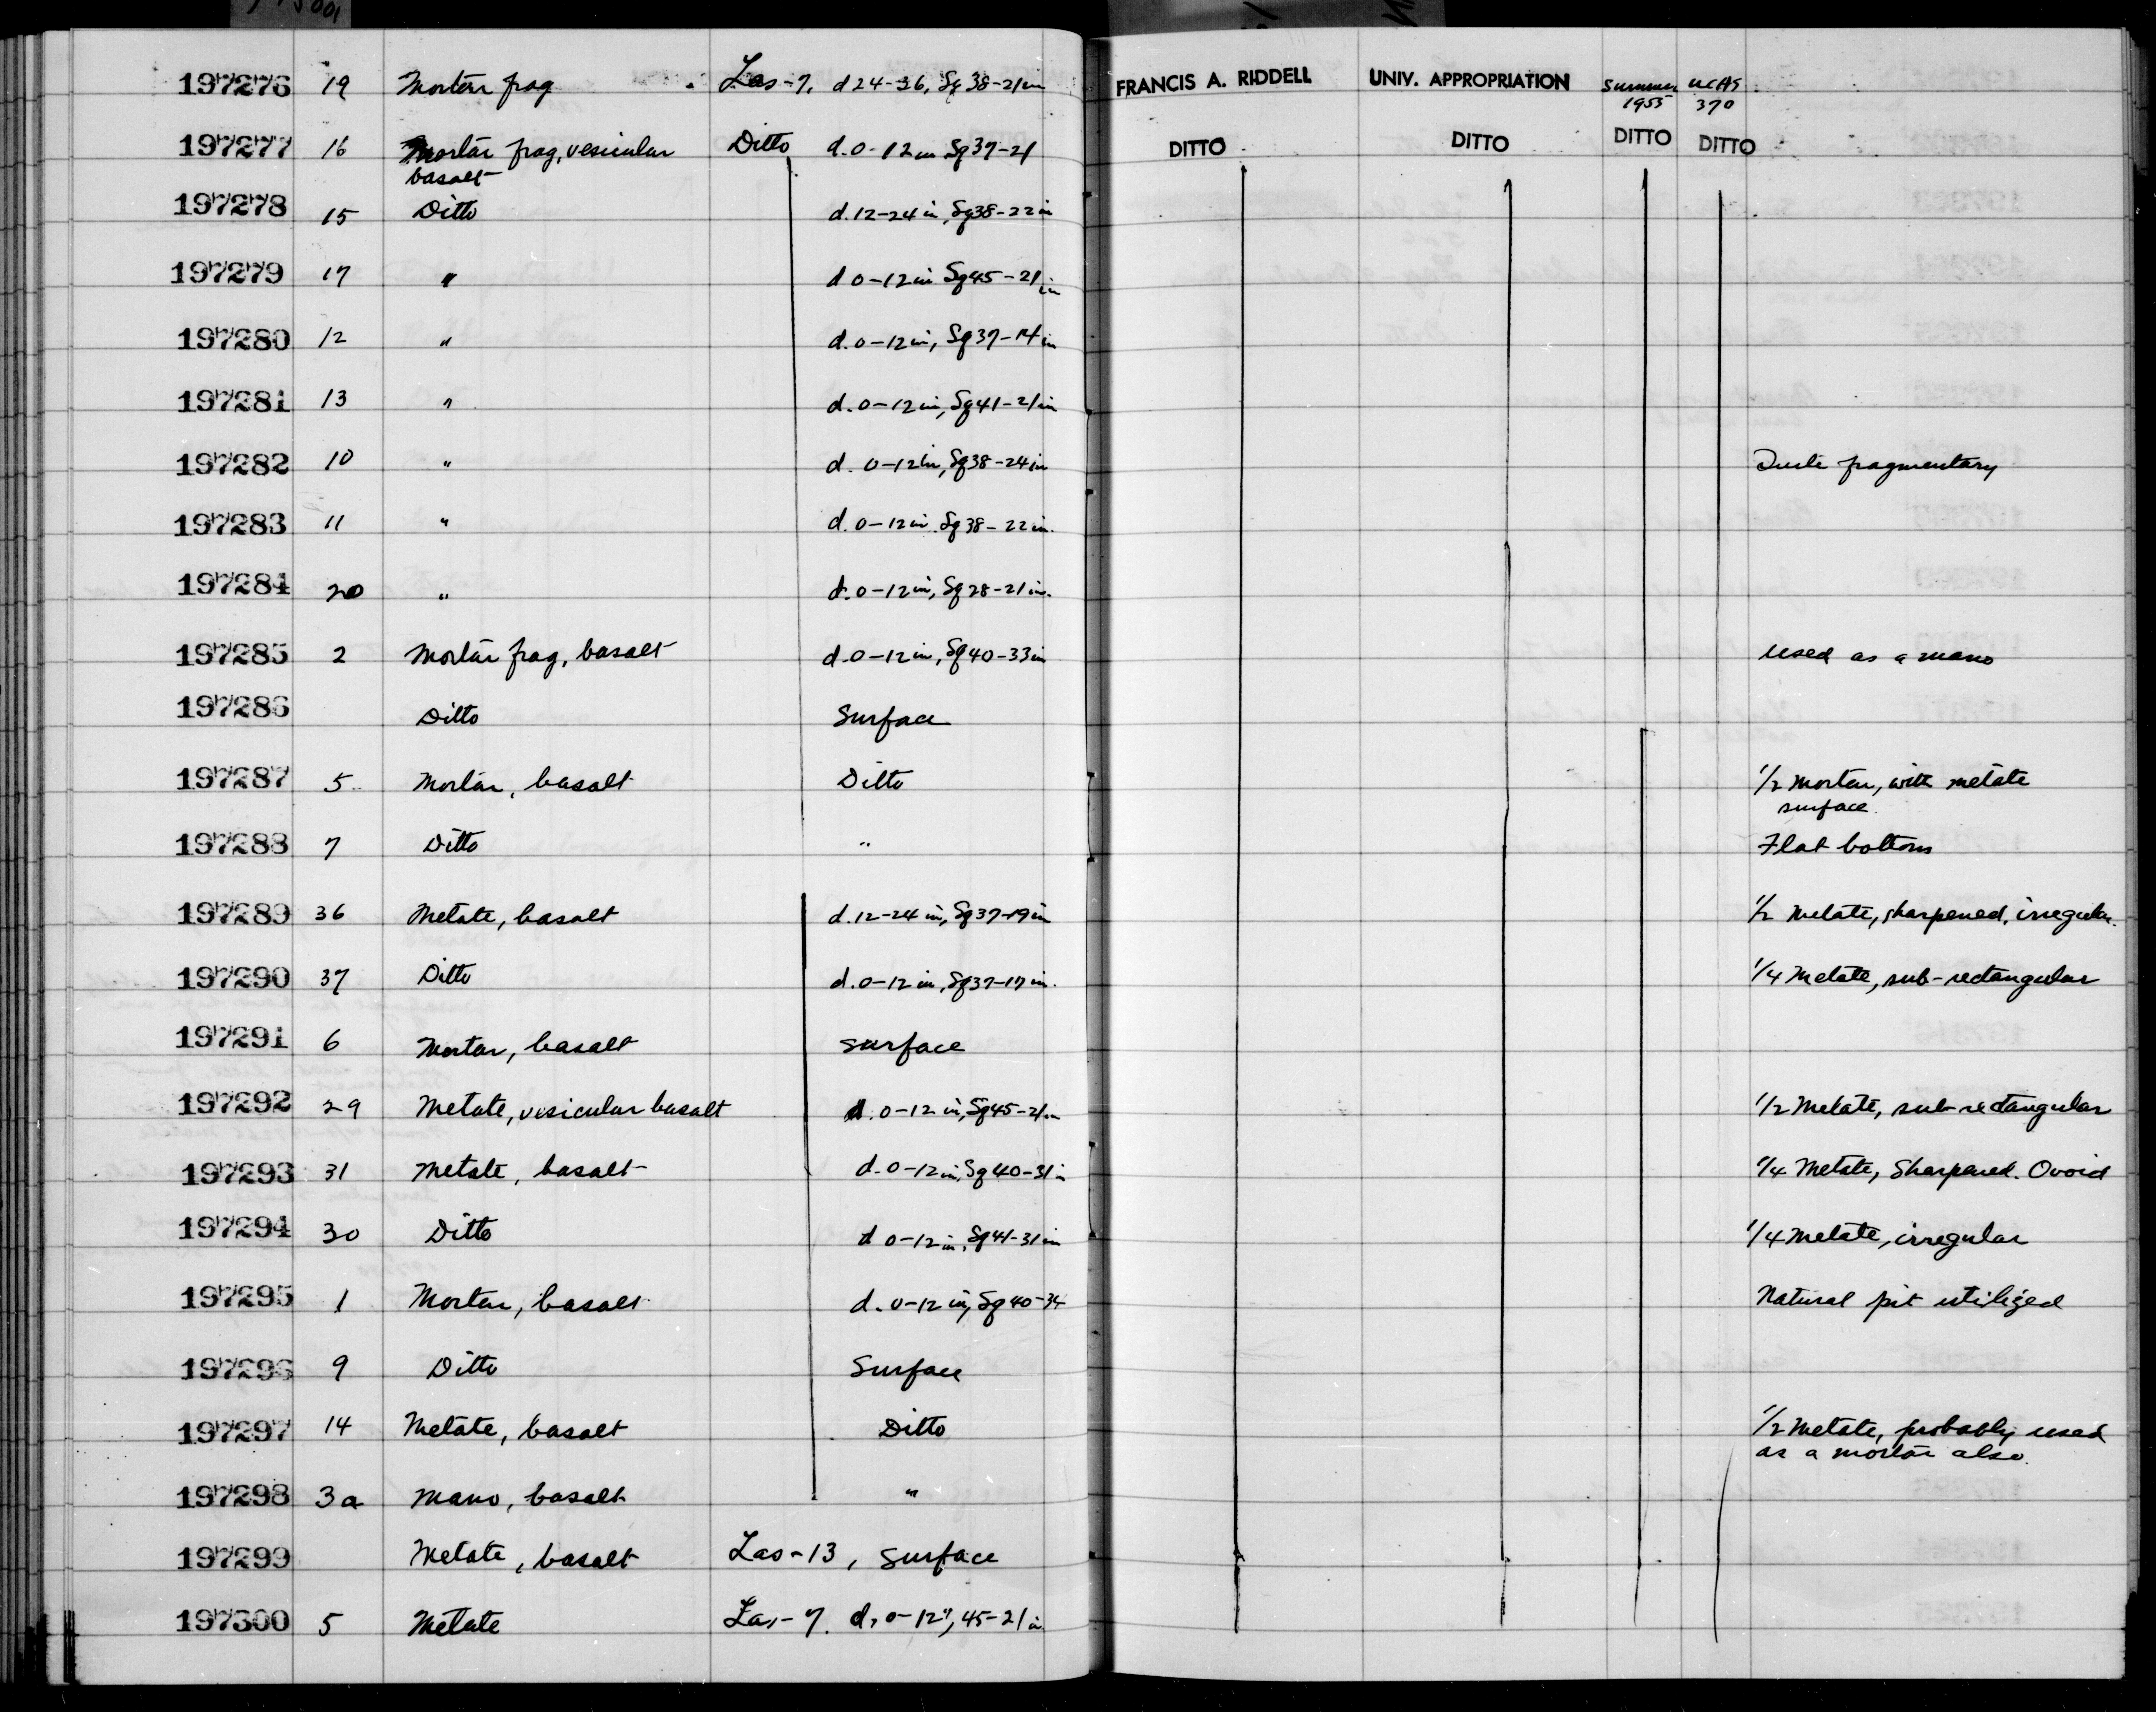 197276 19 Mortar frag Las-7, d 24-36, Sq 38-21 in FRANCIS A. RIDDELL UNIV. APPROPRIATION Summer 1955 UCAS 370
197277 16 Mortar frag, vesicular basalt Ditto d. 0-12 in Sq 37-21 DITTO DITTO DITTO DITTO
197278 15 Ditto d. 12-24 in, Sq 38-22 in
197279 17 " d 0-12 in Sq 45-21 in
197280 12 " d. 0-12 in, Sq 37-14 in
197281 13 " d. 0-12 in, Sq 41-21 in
197282 10 " d. 0-12 in, Sq 38-24 in fragmentary
197283 11 " d. 0-12 in. Sq 38-22 in.
197284 20 " d. 0-12 in, Sq 28-21 in.
197285 2 Mortar frag, basalt d. 0-12 in, Sq 40-33 in used as a mano
197286 Ditto Surface
197287 5 Mortar, basalt Ditto 1/2 mortar, with metate surface.
197288 7 Ditto " Flat bottom
197289 36 Metate, basalt d. 12-24 in, Sq 37-19 in 1/2 Metate, sharpened, irregular.
197290 37 Ditto d. 0-12 in, Sq 37-17 in. 1/4 Metate, sub-rectangular
197291 6 Mortar, basalt surface
197292 29 Metate, vesicular basalt d. 0-12 in, Sq 45-21 in 1/2 Metate, sub-rectangular
197293 31 Metate, basalt d. 0-12 in, Sq 40-31 in 1/4 Metate, Sharpened. Ovoid
197294 30 Ditto d 0-12 in, Sq 41-31 in 1/4 Metate, irregular
197295 1 Mortar, basalt d. 0-12 in, Sq 40-34 Natural pit utilized
197296 9 Ditto Surface
197297 14 Metate, basalt Ditto 1/2 Metate, probably used as a mortar also.
197298 3a Mano, basalt "
197299 Metate, basalt Las-13, surface
197300 5 Metate Las-7. d. 0-12", 45-21 in.